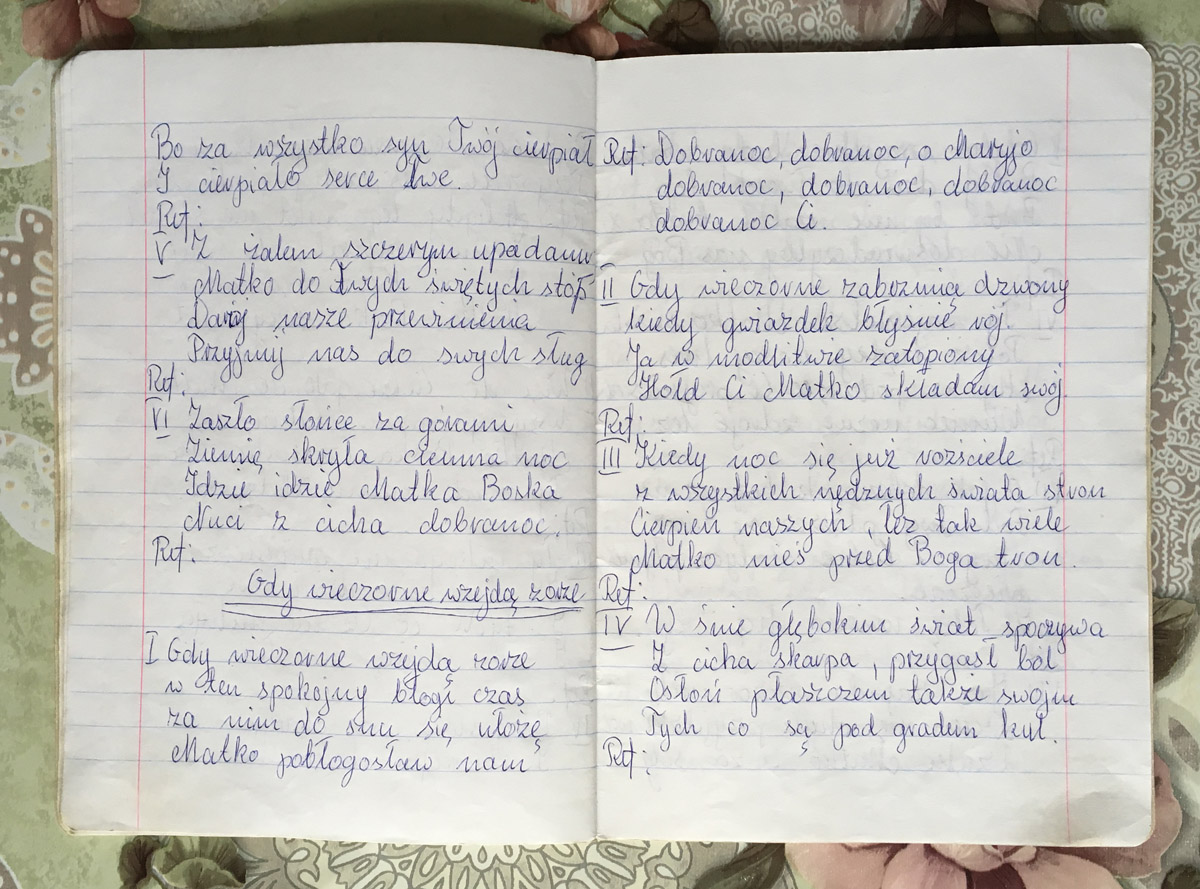 Bo za wszystko syn Twój cierpiał
I cierpiało serce Twe.
Ref:
V Z żalem szczerym upadamy
Matko do Twych świętych stóp
Daruj nasze przewinienia
Przyjmij nas do swych sług
Ref:
VI Zaszło słońce za górami
Ziemię skryła ciemna noc
Idzie idzie Matka Boska
Nuci z cicha dobranoc.
Ref:
Gdy wieczorne wzejdą zorze
I Gdy wieczorne wzejdą zorze
w ten spokojny błogi czas
za nim do snu się ułożę
Matko pobłogosław nam
Ref: Dobranoc, dobranoc, o Maryjo
dobranoc, dobranoc, dobranoc
dobranoc Ci.
II Gdy wieczorne zabrzmią dzwony
kiedy gwiazdek błyśnie rój.
Ja w modlitwie zatopiony
Hołd Ci Matko składam swój.
Ref:
III Kiedy noc się już rozściele
z wszystkich nędznych świata stron
Cierpień naszych łez tak wiele
Matko nieś przed Boga tron.
Ref:
IV W śnie głębokim świat spoczywa
Z cicha skarpa, przygasł ból
Osłoń płaszczem także swojm
Tych co są pod gradem kul.
Ref: